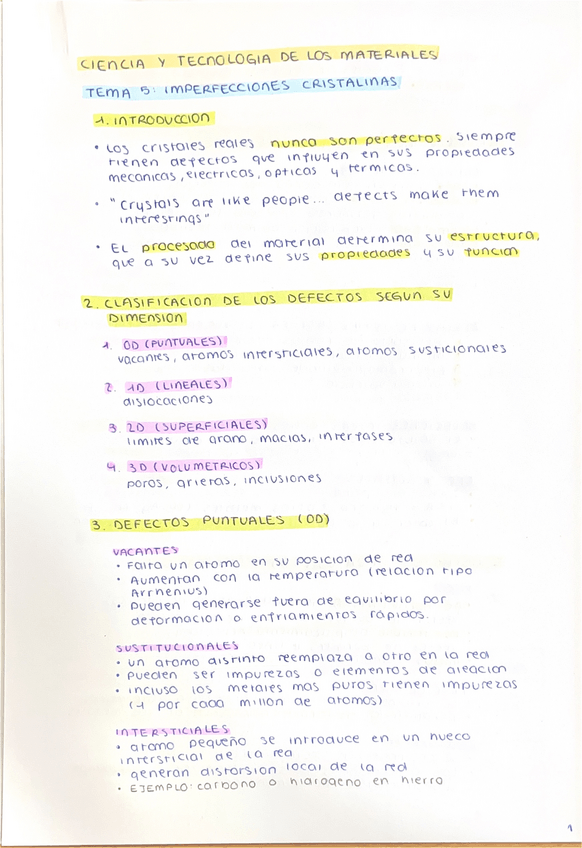 CIENCIA Y TECNOLOGIA DE LOS MATERIALES
TEMA 5: IMPERFECCIONES CRISTALINAS
1. INTRODUCCION
• Los cristales reales nunca son perfectos. Siempre
tienen defectos que influyen en sus propiedades
mecanicas, electricas, opticas y termicas.
• "Crystals are like people... defects make them
interestings"
• El procesado del material determina su estructura,
que a su vez define sus propiedades y su funcion
2. CLASIFICACION DE LOS DEFECTOS SEGUN SU
DIMENSION
1. 0D (PUNTUALES)
vacantes, atomos intersticiales, atomos susticionales
2. 1D (LINEALES)
dislocaciones
3. 2D (SUPERFICIALES)
limites de grano, maclas, interfases
4. 3D (VOLUMETRICOS)
poros, grietas, inclusiones
3. DEFECTOS PUNTUALES (0D)
VACANTES
• Falta un atomo en su posicion de red
• Aumentan con la temperatura (relacion tipo
Arrhenius)
• Pueden generarse fuera de equilibrio por
deformacion o enfriamientos rápidos.
SUSTITUCIONALES
• un atomo distinto reemplaza a otro en la red
• Pueden ser impurezas o elementos de aleacion
• incluso los metales mas puros tienen impurezas
(1 por cada millon de atomos)
INTERSTICIALES
• atomo pequeño se introduce en un hueco
intersticial de la red
• generan distorsion local de la red
• EJEMPLO: carbono o hidrogeno en hierro
1